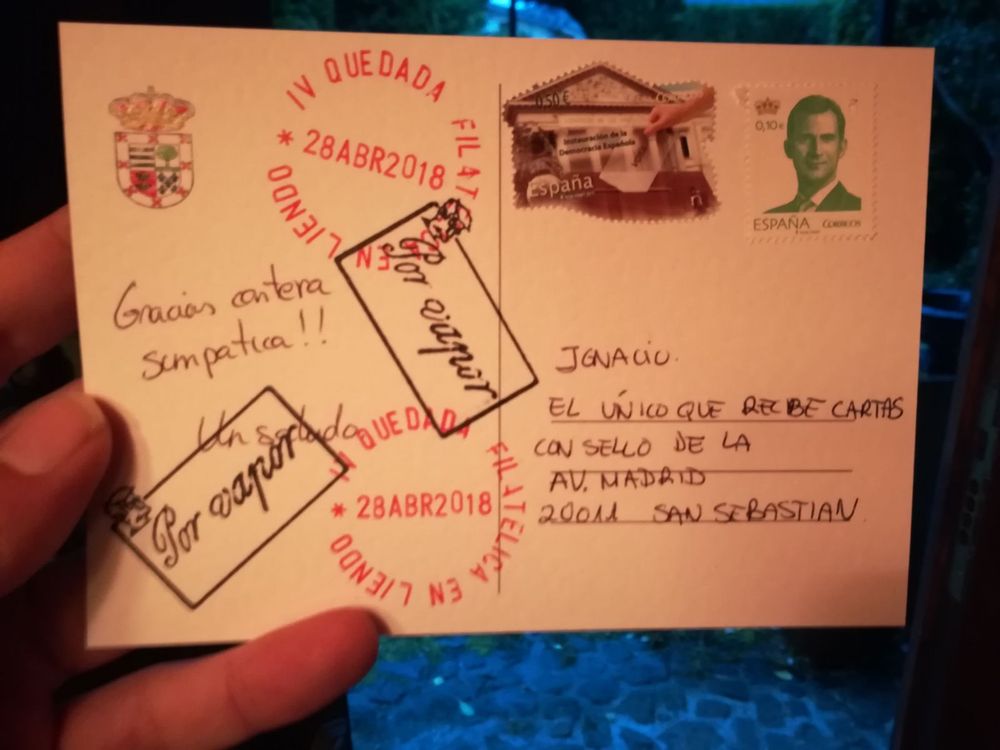 IV QUEDADA FILATELICA EN LIENDO
* 28ABR2018
0,50€
Instauración de la
Democracia Española
España
ñ
0,10€
ESPAÑA CORREOS
Gracias cartera
simpatica!!
Un saludo
Por vapor
Por vapor
IV QUEDADA FILATELICA EN LIENDO
* 28ABR2018
IGNACIO.
EL ÚNICO QUE RECIBE CARTAS
CON SELLO DE LA
AV. MADRID
20011 SAN SEBASTIAN